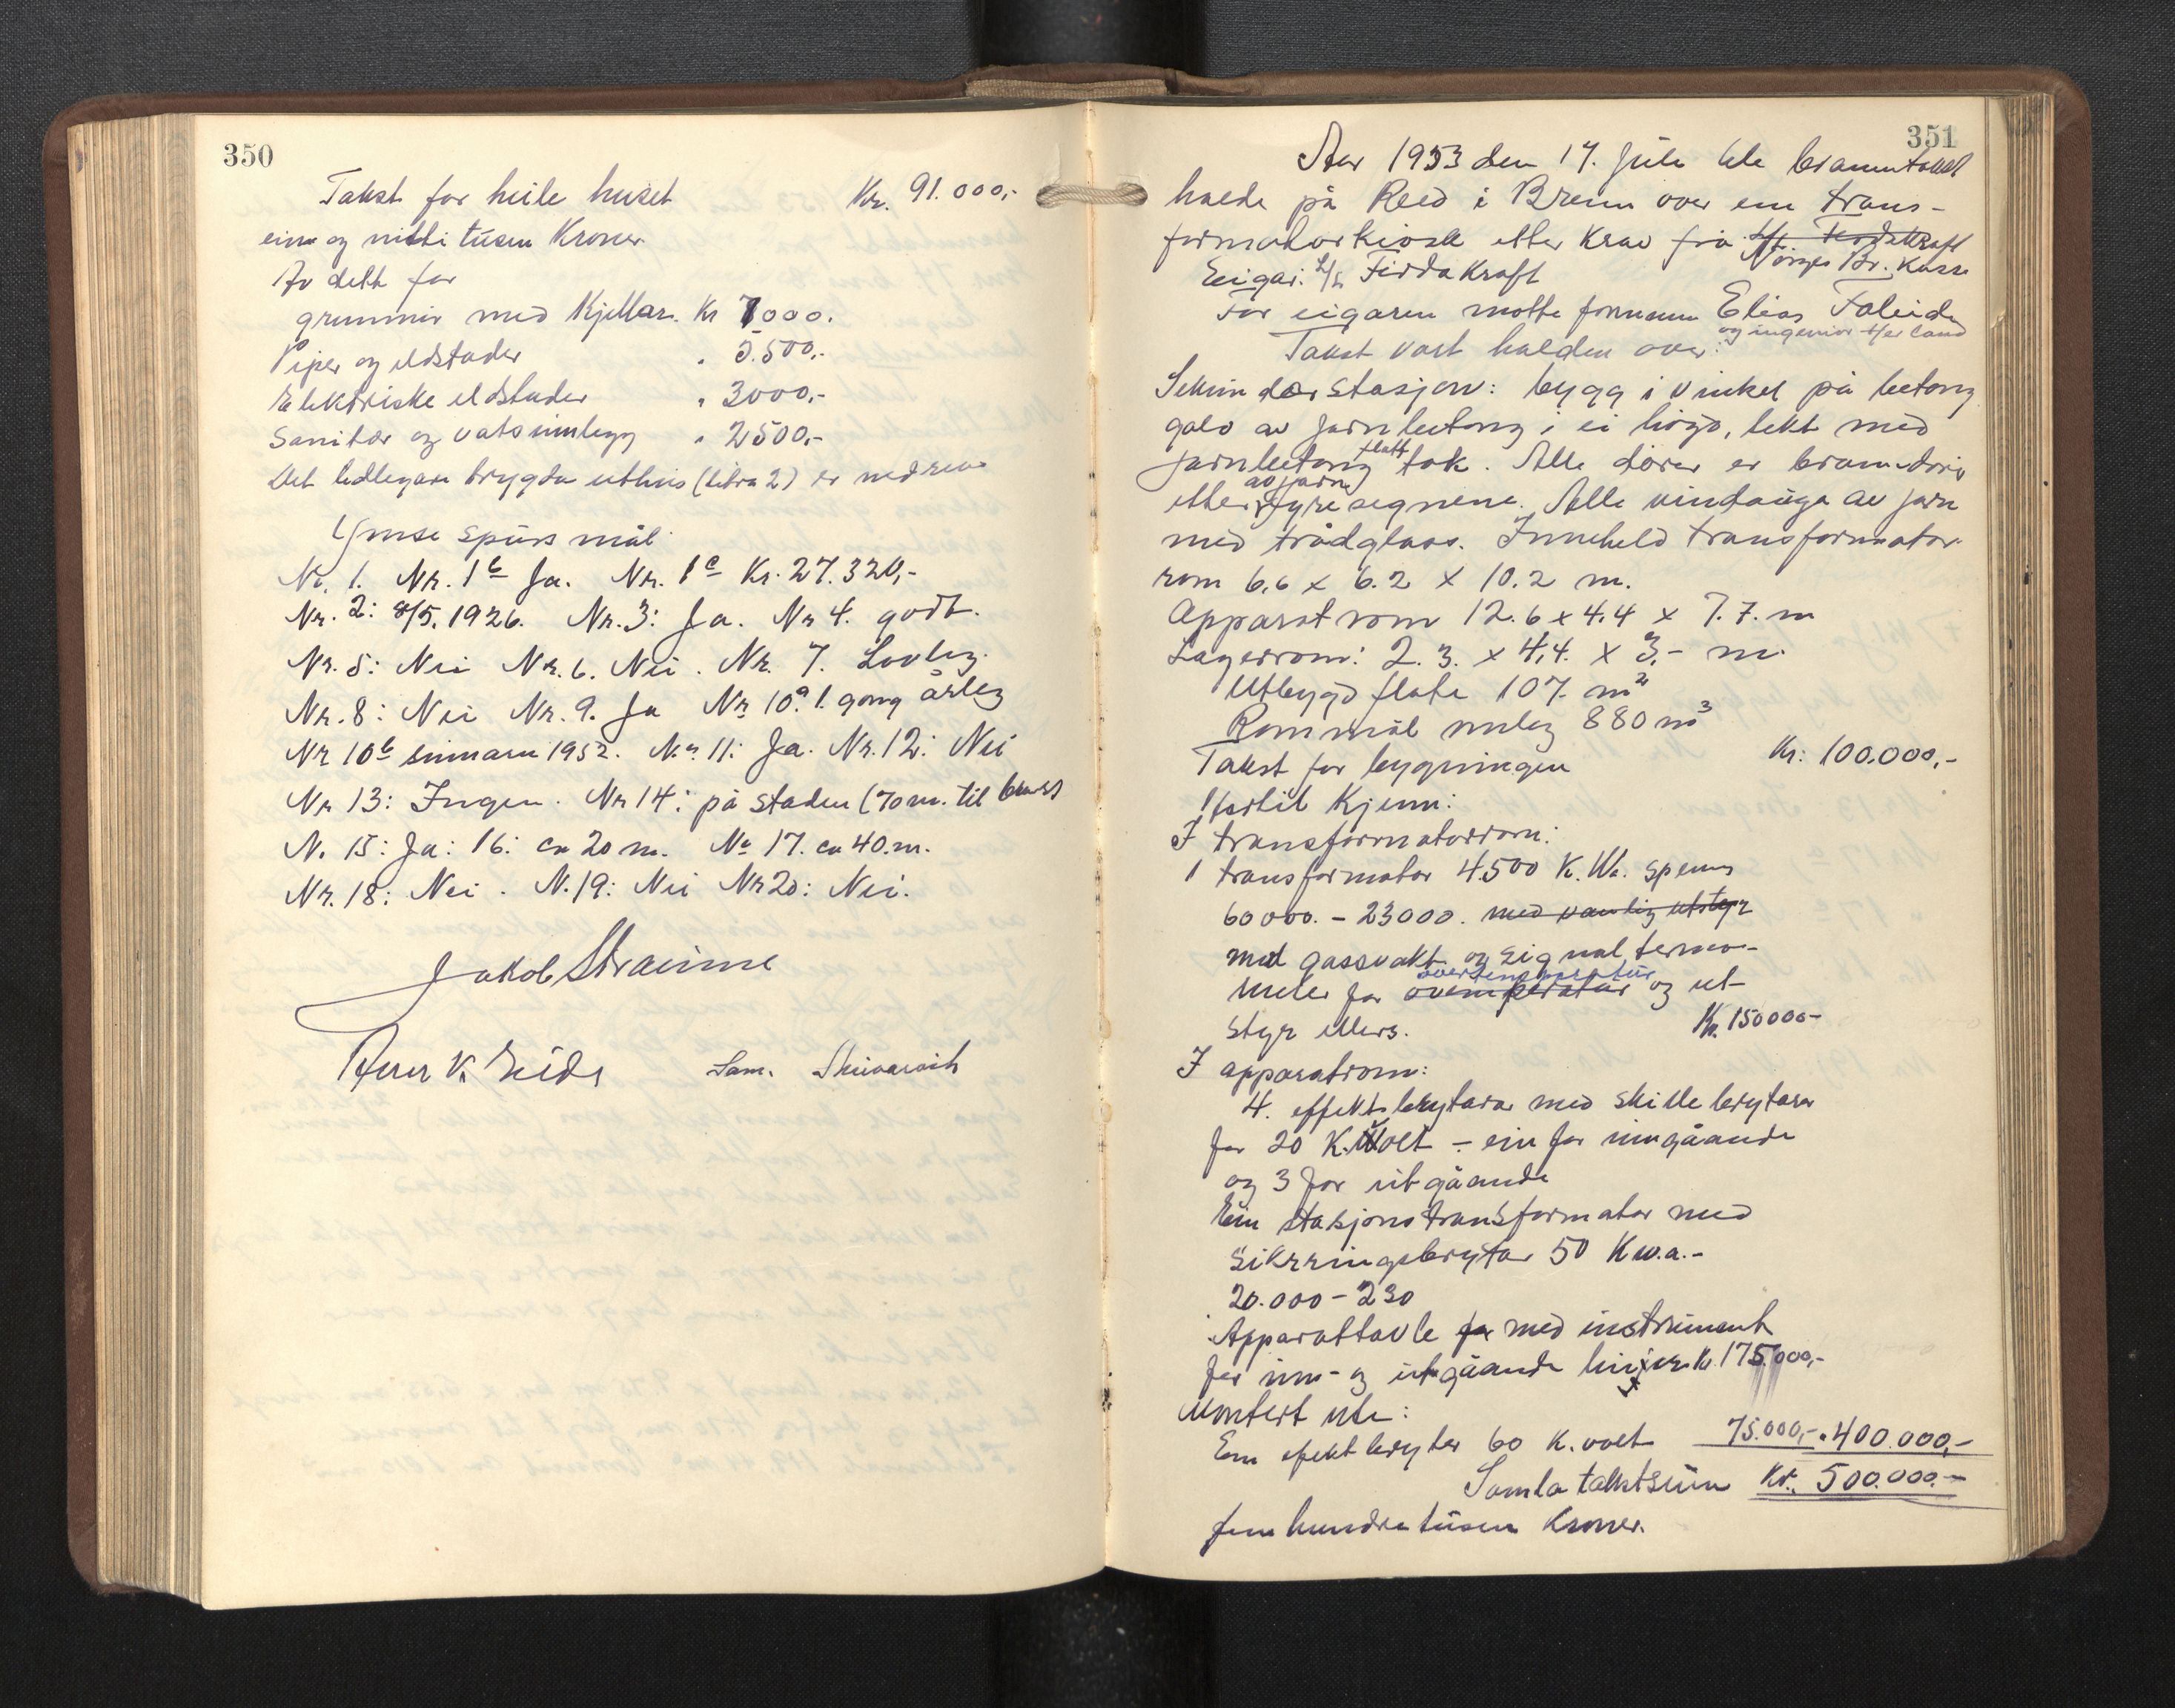 350
Takst for heile huset Kr. 91.000,-
ein og nitti tusen Kroner.
Av dette for
grunnmur med Kjellar. Kr 7000.
Piper og eldstader " 3.500,-
Elektriske eldstader " 3000,-
Sanitær og vatsinnlegg " 2500,-
Det tidlegare brygda uthus (litra 2) er nedreve
Ymse spursmål
Nr. 1. Nr. 1b Ja. Nr. 1c Kr. 27.320,-
Nr. 2: 8/5. 1926. Nr. 3: Ja. Nr 4. godt.
Nr. 5: Nei Nr. 6. Nei. Nr. 7. Lovleg.
Nr. 8: Nei Nr. 9. Ja Nr 10a 1. gong årleg
Nr 10b sumaren 1952. Nr. 11: Ja. Nr. 12: Nei
Nr 13: Ingen. Nr 14: på staden (70 m. til
N. 15: Ja: 16: ca 20 m. Nr 17. ca 40. m.
Nr. 18: Nei. N. 19: Nei Nr 20: Nei.
Jakob Straume
K. Eide Sam.
351
Aar 1953 den 17. juli ble branntakst
halde på Reed i Breim over ein trans-
formatorkiosk etter krav frå L/L Firdakraft
Norges Br. Kasse
Eigar: L/L Firda Kraft
For eigaren møtte formann Elias Faleide
og ingeniør Herland
Takst vart halden over:
Sekundærstasjon: bygg i vinkel på betong
golv av jarnbetong i ei høgd, tekt med
jarnbetong flatt tak. Alle dører er branndører
av jarn
etter fyresegnene. Alle vindauga av jarn
med trådglass. Inneheld transformator-
rom 6,6 x 6.2 x 10.2 m.
Apparatrom 12.6 x 4,4 x 7.7. m
Lagerrom: 2.3. x 4,4. x 3,- m.
Utbygd flate 107 m²
Rommål umleg 880 m³
Takst for bygningen Kr: 100.000,-
Hertil kjem:
I transformatorrom:
1 transformator 4500 K.Wa. spenn
60000. - 23000. med vanlig utstyr
med gassvakt og signal termo-
overtemperatur
meter for overtemperatur og ut-
styr ellers. Kr. 150000-
I apparatrom:
4. effektsbrytarar med skillebrytarar
for 20 K.Volt - ein for inngåande
og 3 for utgåande
Ein stasjonstransformator med
sikringsbrytar 50 Kw.a.-
20.000 - 230
Apparattavle for med instrument
for inn- og utgåande linjer Kr. 175.000,-
Montert ute:
Ein efektbrytar 60 K.volt 75.000,- " 400.000,-
Samla takstsum Kr. 500.000.-
fem hundre tusen Kroner.